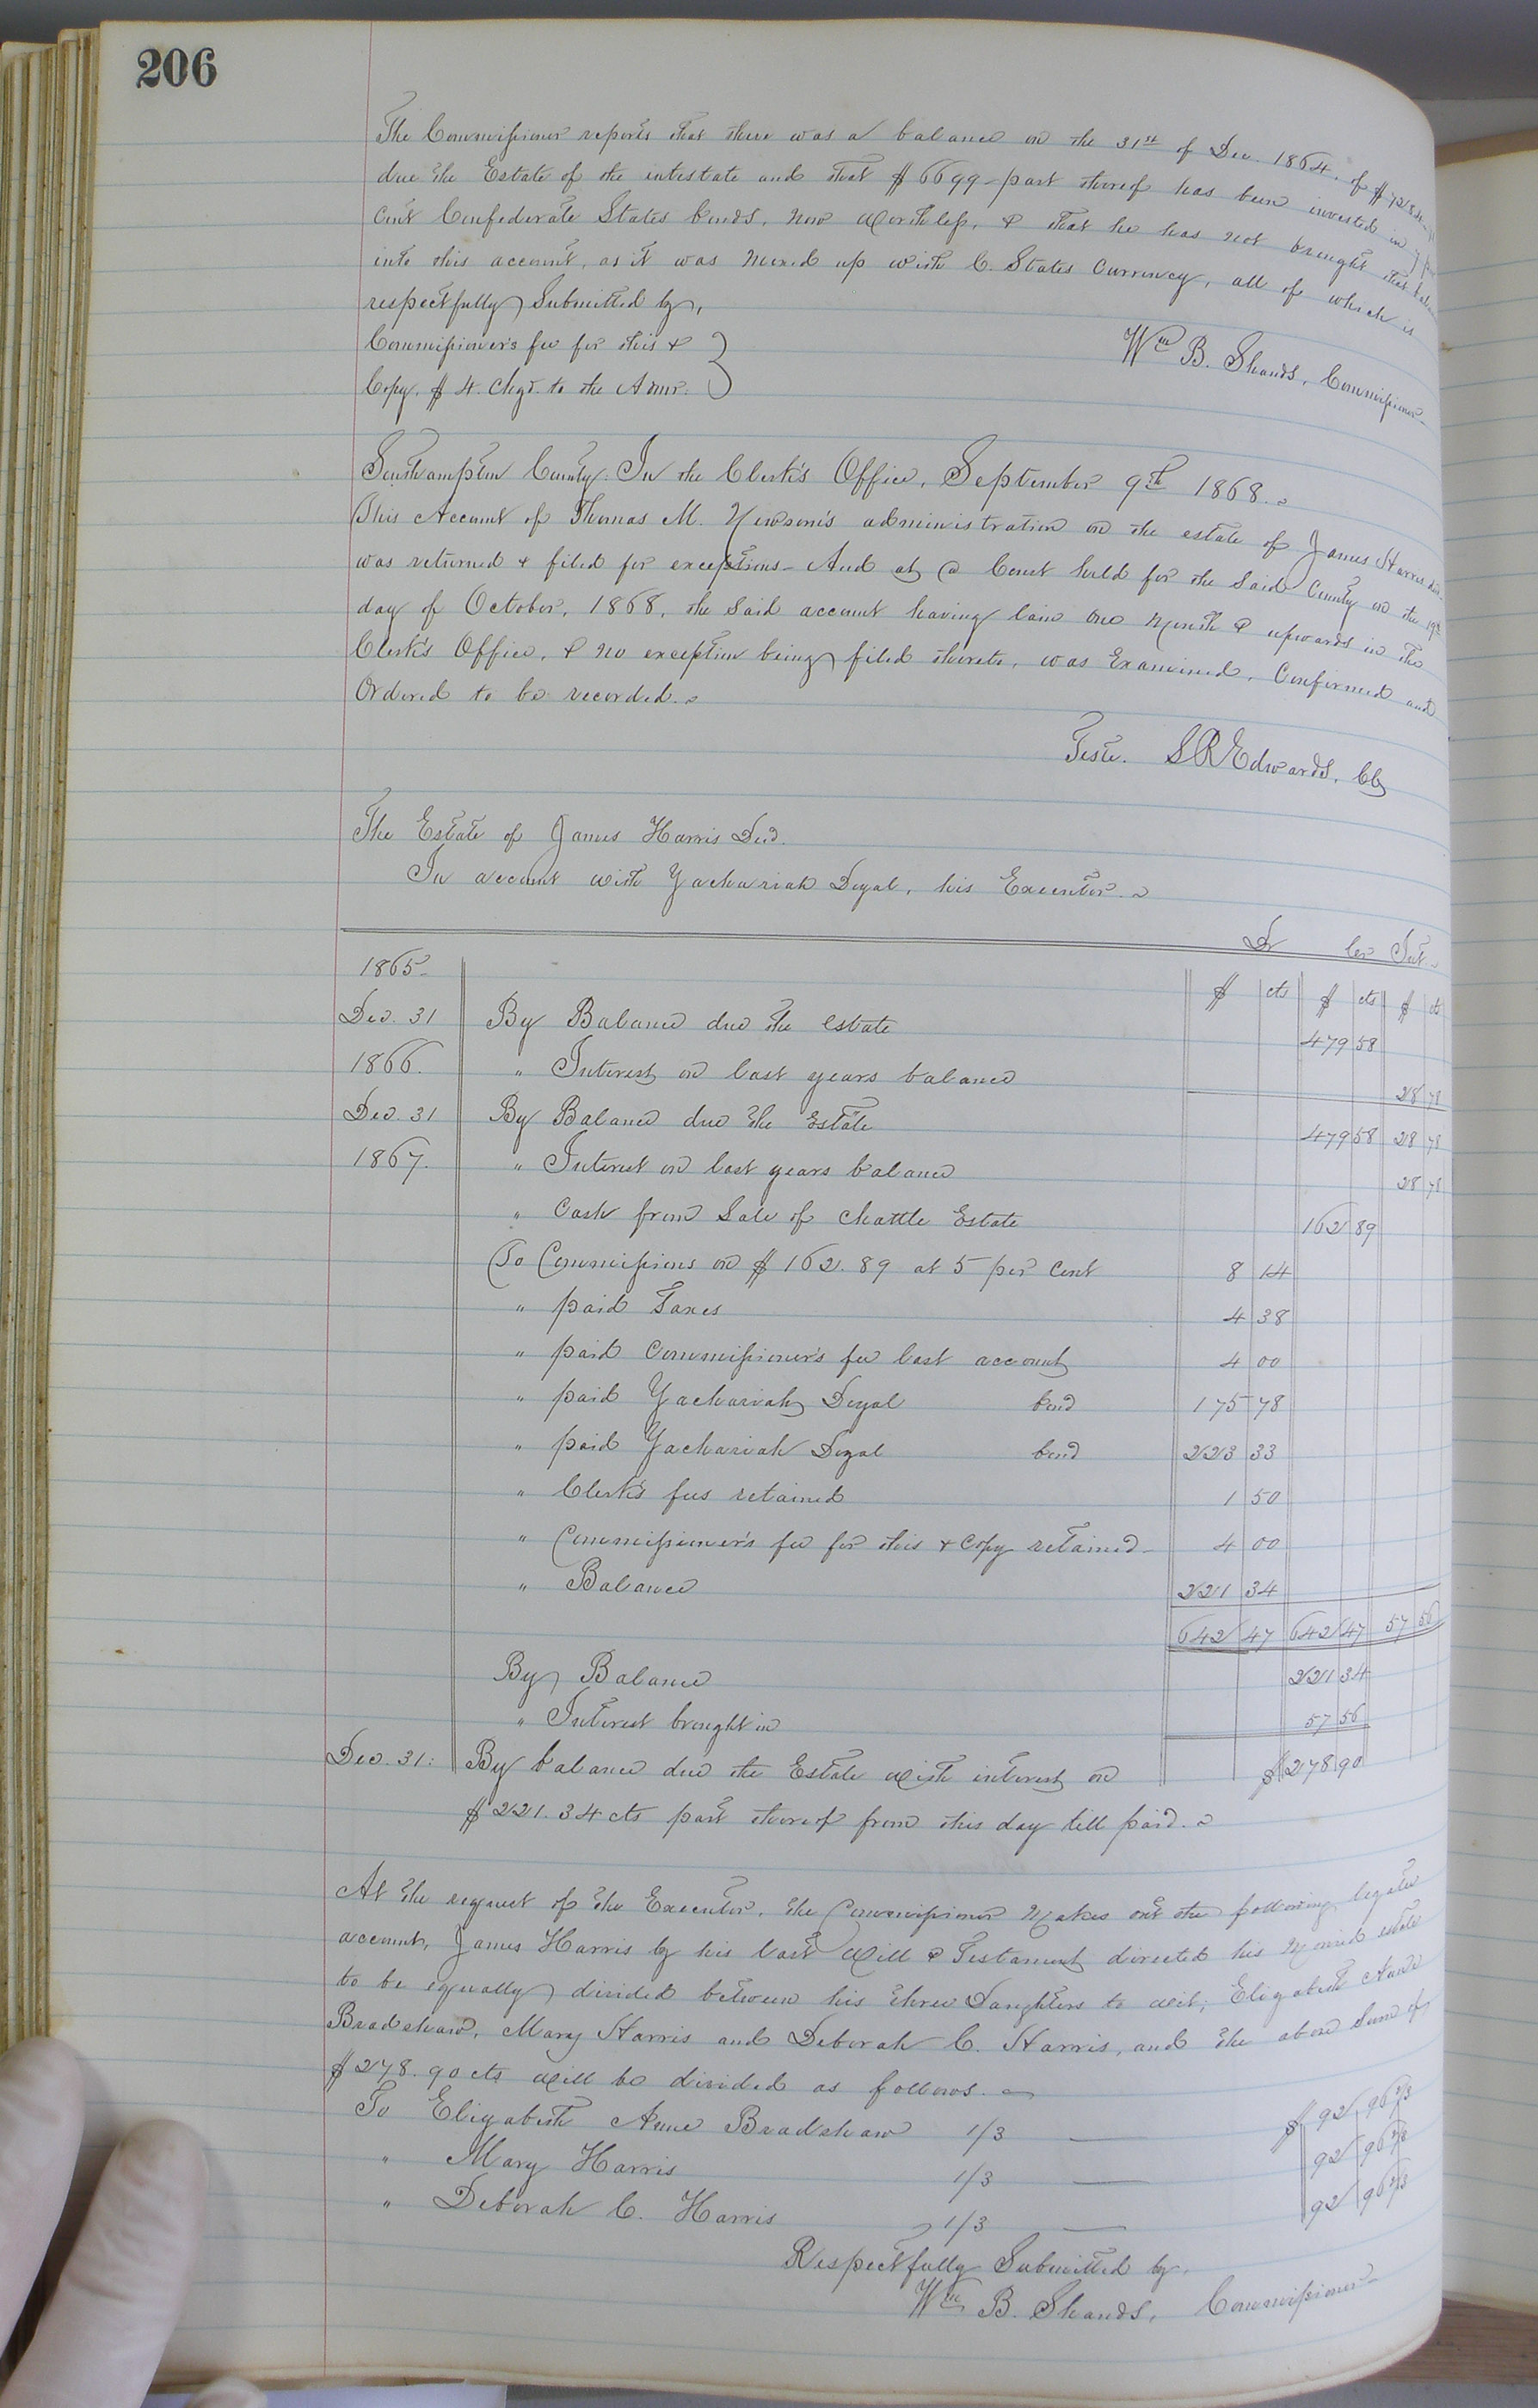 206
The Commissioner reports that there was a balance on the 31st of Dec. 1864. of $
due the Estate of the intestate and that $6699 part thereof has been invested in
cent Confederate States bonds, now worthless, & that he has not brought that
into this account, as it was mixed up with C. States Currency, all of which is
respectfully Submitted by,
Commissioner's fee for this &
Copy. $4. chgd. to the Admr.
Wm B. Shands, Commissioner
Southampton County: In the Clerk's Office, September 9th 1868.
This Account of Thomas M. Newsom's administration on the estate of James Harris decd.
was returned & filed for exceptions - And at a Court held for the said County on the 19th
day of October, 1868, the said account having lain one month & upwards in the
Clerk's Office, & no exception being filed thereto, was Examined, Confirmed and
Ordered to be recorded.
Teste. S R Edwards, Clk
The Estate of James Harris Decd.
In account with Zachariah Doyal, his Executor.
Dr Cr Int.
1865 $ cts $ cts $ cts
Dec. 31 By Balance due the estate 479 58
1866. " Interest on last years balance 28 78
Dec. 31 By Balance due the Estate 479 58 28 78
1867. " Interest on last years balance 28 78
" Cash from Sale of Chattle Estate 162 89
To Commissions on $162.89 at 5 per cent 8 14
" paid Taxes 4 38
" paid Commissioner's fee last account 4 00
" paid Zachariah Doyal bond 175 78
" paid Zachariah Doyal bond 223 33
" Clerk's fees retained 1 50
" Commissioner's fee for this & Copy retained 4 00
" Balance 221 34
642 47 642 47 57 56
By Balance 221 34
" Interest brought in 57 56
Dec. 31: By balance due the Estate with interest on $278 90
$221.34 cts part thereof from this day till paid.
At the request of the Executor, the Commissioner makes out the following legatee
account, James Harris by his last Will & Testament directed his mixed estate
to be equally divided between his three Daughters to wit; Elizabeth Anne
Bradshaw, Mary Harris and Deborah C. Harris, and the above sum of
$278.90 cts will be divided as follows.
To Elizabeth Anne Bradshaw 1/3 — $92 96 2/3
" Mary Harris 1/3 — 92 96 2/3
" Deborah C. Harris 1/3 — 92 96 2/3
Respectfully Submitted by,
Wm B. Shands, Commissioner